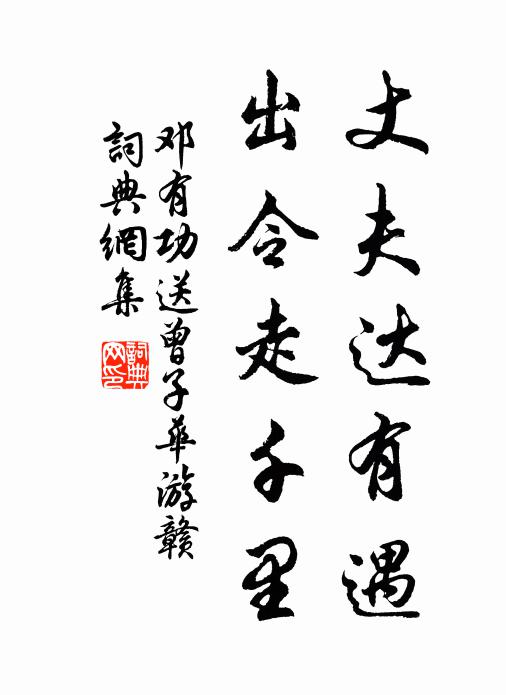 丈夫达有遇
出令走千里
邓有功送曾子华游赣
詞典網集
詞典网印